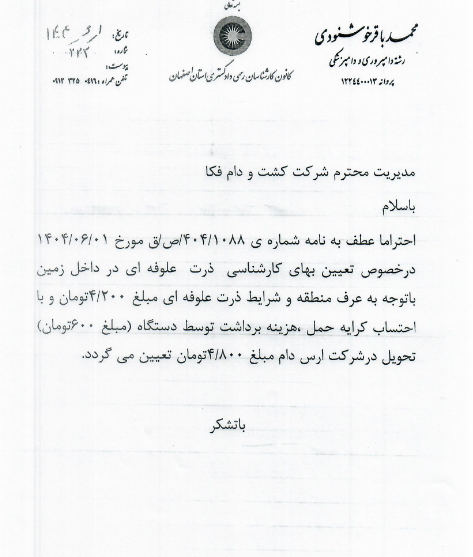 بسمه تعالی
محمد باقر خوشنودی
رشته دامپروری و دامپزشکی
پروانه ۱۲۲۴۴۰۰۰۱۳
کانون کارشناسان رسمی دادگستری استان اصفهان
تاریخ:
شماره: ۲۲۳
پیوست:
تلفن همراه: ۰۹۱۳ ۳۲۵ ۰۴۱۹
مدیریت محترم شرکت کشت و دام فکا
باسلام
احتراما عطف به نامه شماره ی ۴۰۴/۱۰۸۸/ص/ق مورخ ۱۴۰۴/۰۶/۰۱
درخصوص تعیین بهای کارشناسی ذرت علوفه ای در داخل زمین
باتوجه به عرف منطقه و شرایط ذرت علوفه ای مبلغ ۴/۲۰۰تومان و با
احتساب کرایه حمل ،هزینه برداشت توسط دستگاه (مبلغ ۶۰۰تومان)
تحویل درشرکت ارس دام مبلغ ۴/۸۰۰تومان تعیین می گردد.
باتشکر